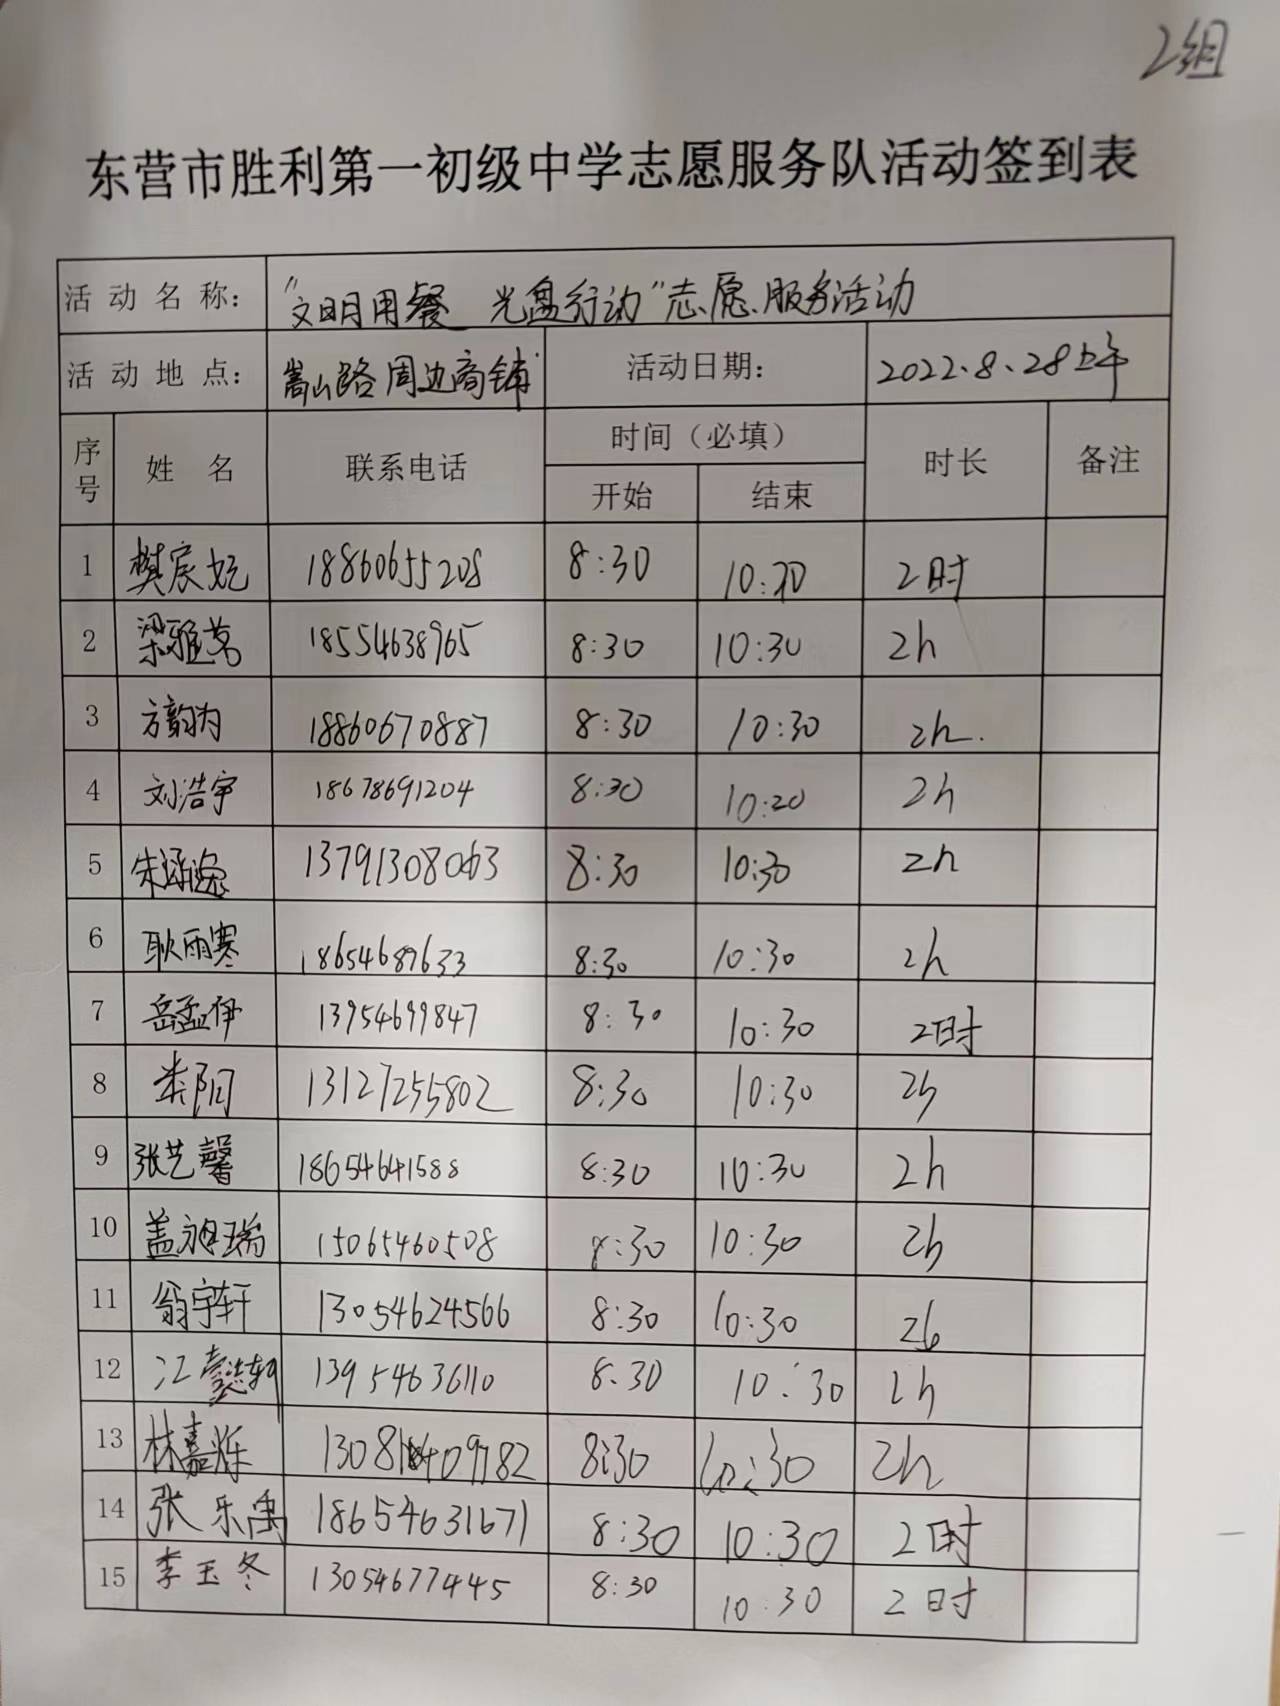 2组
东营市胜利第一初级中学志愿服务队活动签到表
活动名称： “文明用餐 光盘行动”志愿服务活动
活动地点： 嵩山路周边商铺 活动日期： 2022.8.28上午
序号 姓名 联系电话 时间（必填） 时长 备注
开始 结束
1 樊宸妃 18860655208 8:30 10:30 2时
2 梁雅茑 18554638965 8:30 10:30 2h
3 方韵为 18860670887 8:30 10:30 2h.
4 刘浩宇 18678691204 8:30 10:20 2h
5 朱涵逸 13791308063 8:30 10:30 2h
6 耿雨寒 18654687633 8:30 10:30 2h
7 岳孟伊 13954699847 8:30 10:30 2时
8 娄阳 13127255802 8:30 10:30 2h
9 张艺馨 18654641588 8:30 10:30 2h
10 盖昶瑞 15065460508 8:30 10:30 2h
11 翁宇轩 13054624566 8:30 10:30 2h
12 江懿轲 13954636110 8:30 10:30 2h
13 林嘉烁 8:30 10:30 2h
14 张乐禹 18654631671 8:30 10:30 2时
15 李玉冬 13054677445 8:30 10:30 2时